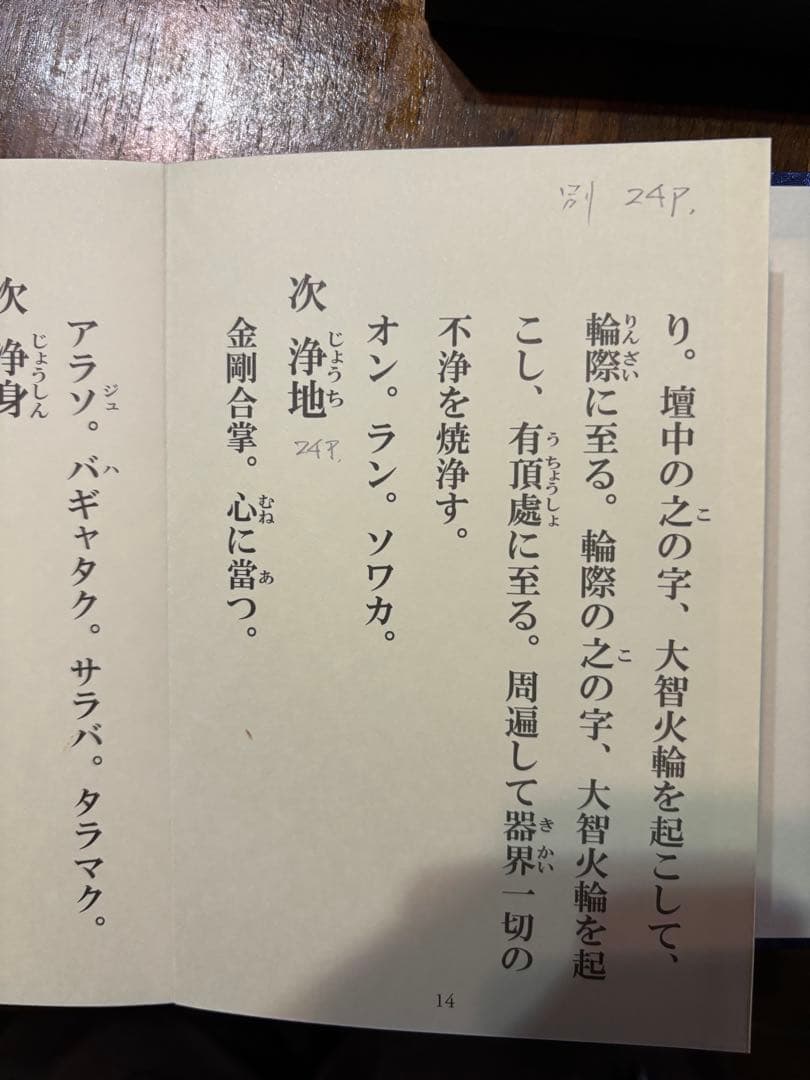 別 24P.
り。壇中の之の字、大智火輪を起こして、
輪際に至る。輪際の之の字、大智火輪を起
こし、有頂處に至る。周遍して器界一切の
不浄を焼浄す。
オン。ラン。ソワカ。
次 浄地 24P.
金剛合掌。心に當つ。
アラソ。バギャタク。サラバ。タラマク。
次 浄身
14